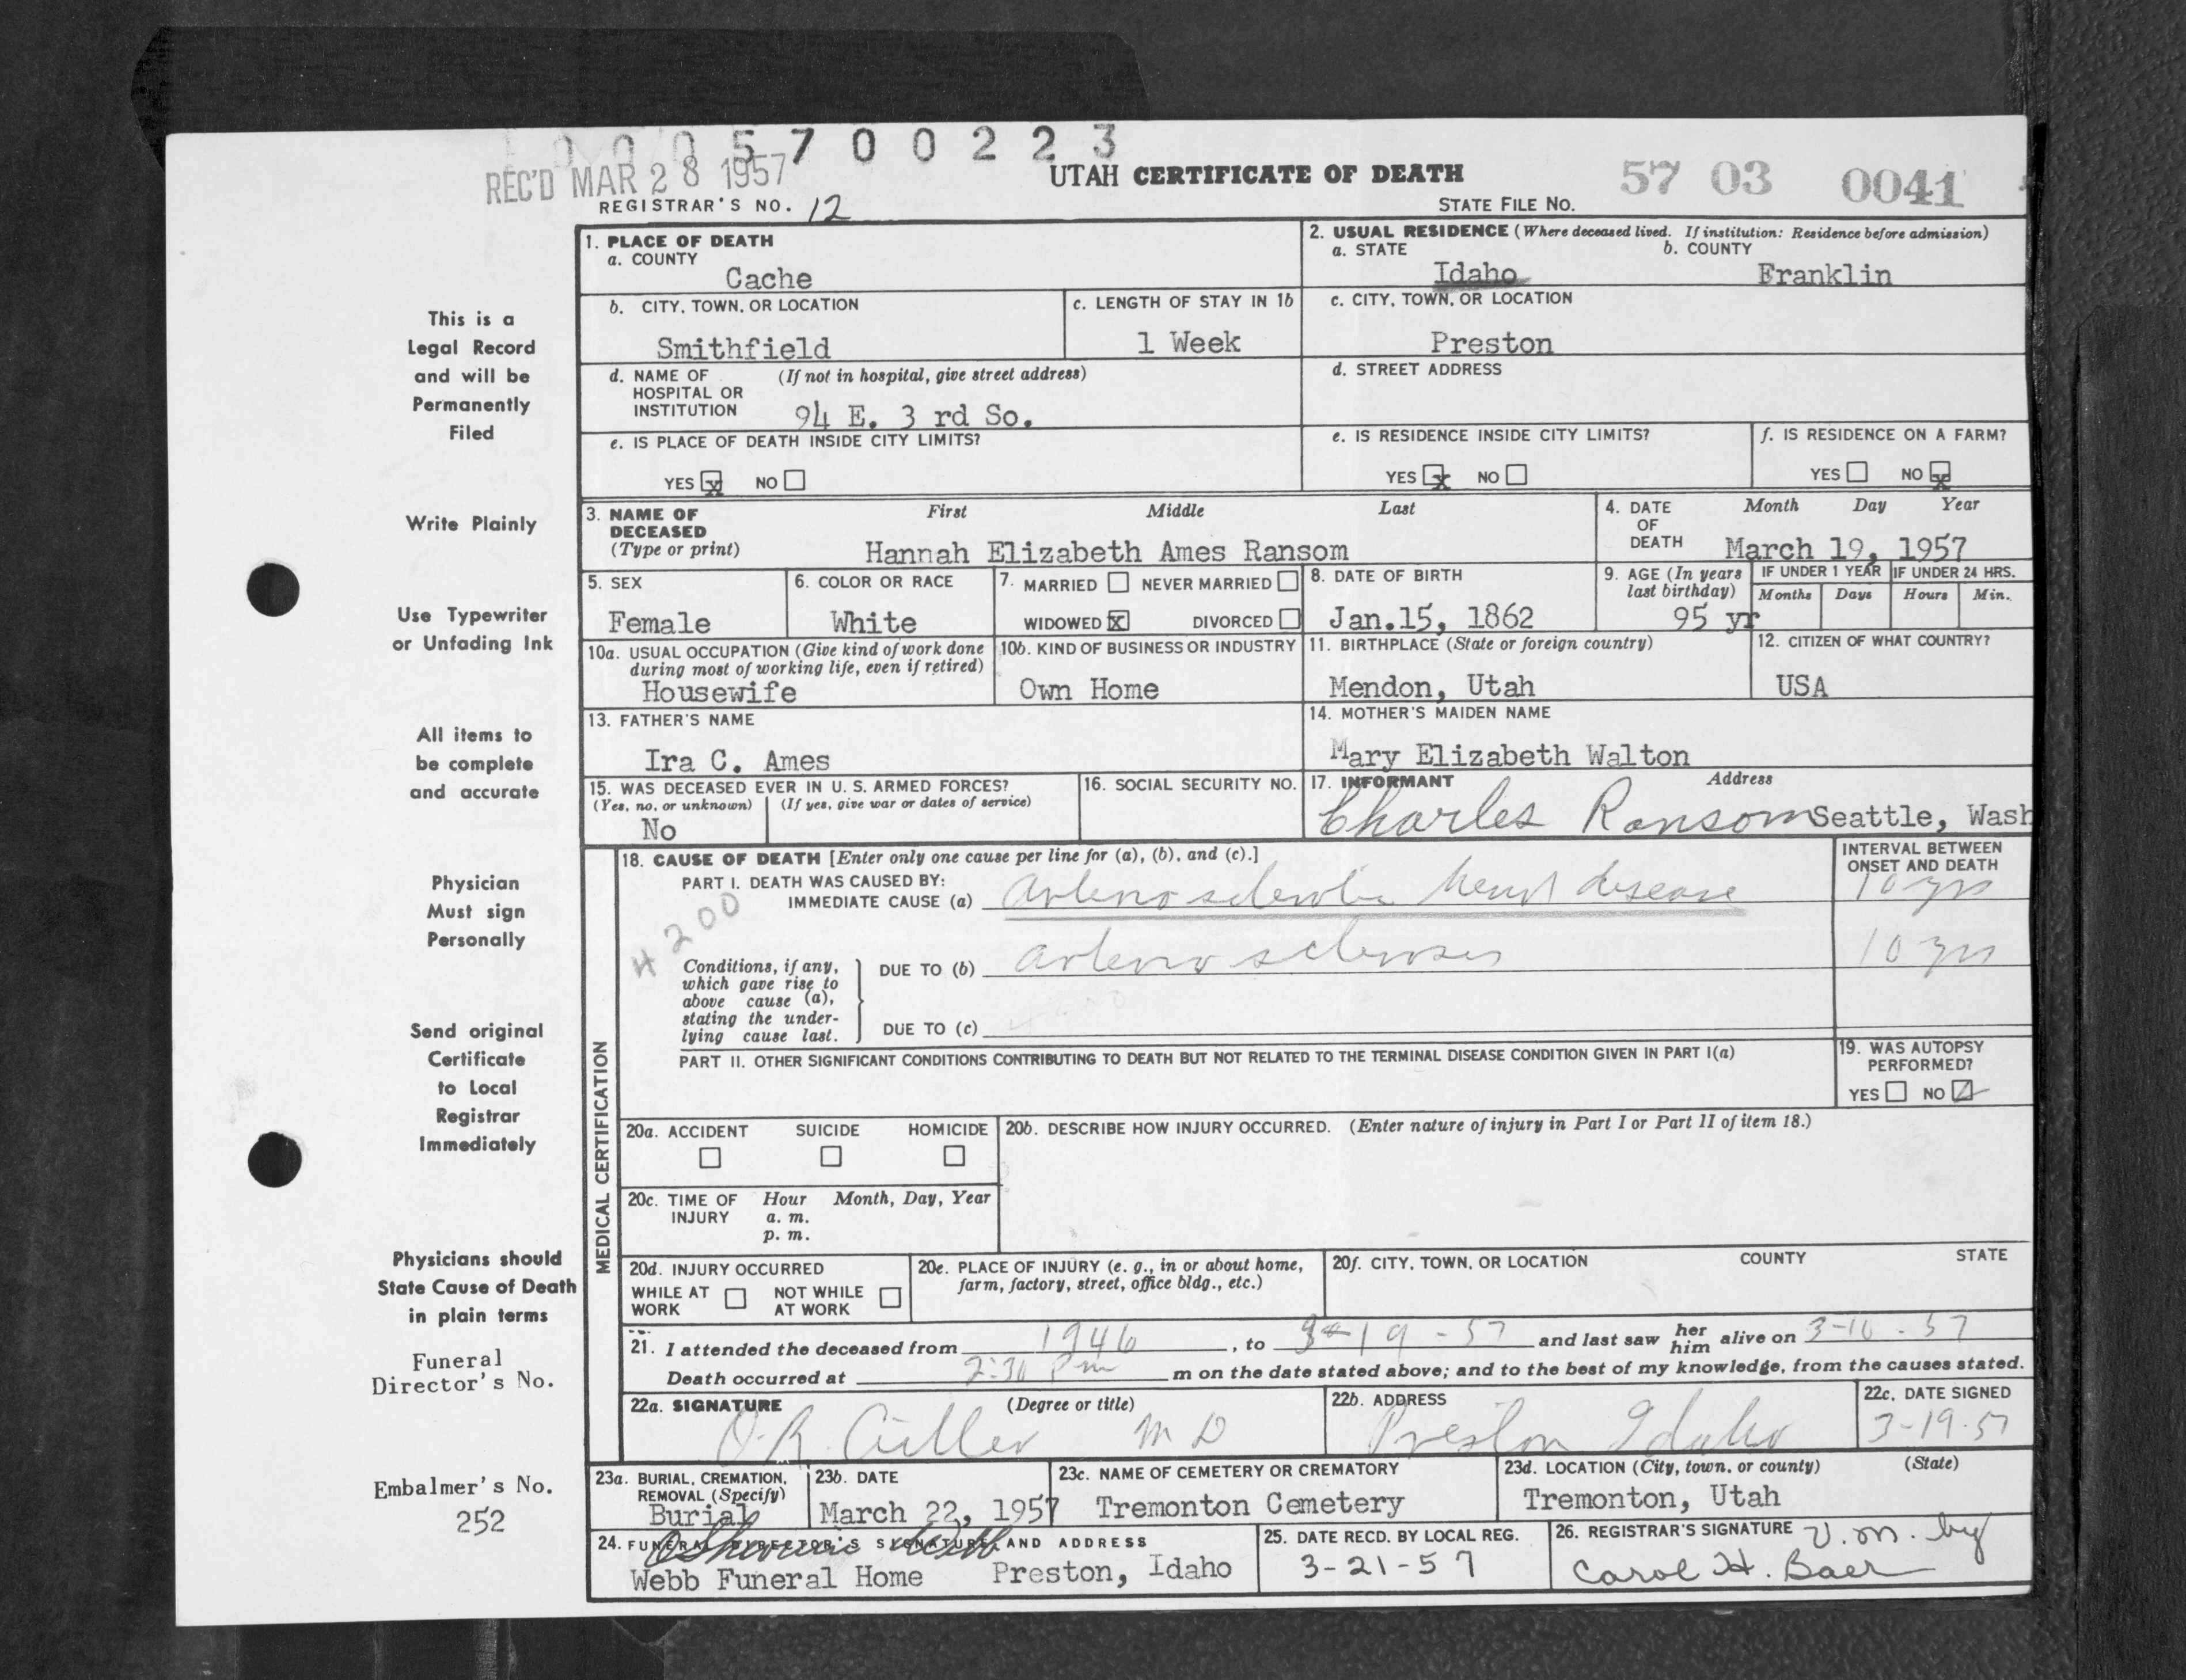 1 0 0 0 5 7 0 0 2 2 3
REC'D MAR 28 1957
UTAH CERTIFICATE OF DEATH
57 03 0041
REGISTRAR'S NO. 12
STATE FILE NO.
1. PLACE OF DEATH
a. COUNTY
Cache
2. USUAL RESIDENCE (Where deceased lived. If institution: Residence before admission)
a. STATE b. COUNTY
Idaho Franklin
b. CITY, TOWN, OR LOCATION
Smithfield
c. LENGTH OF STAY IN 1b
1 Week
c. CITY, TOWN, OR LOCATION
Preston
d. NAME OF (If not in hospital, give street address)
HOSPITAL OR
INSTITUTION 94 E. 3 rd So.
d. STREET ADDRESS
e. IS PLACE OF DEATH INSIDE CITY LIMITS?
YES x NO
e. IS RESIDENCE INSIDE CITY LIMITS?
YES x NO
f. IS RESIDENCE ON A FARM?
YES NO x
3. NAME OF First Middle Last
DECEASED
(Type or print) Hannah Elizabeth Ames Ransom
4. DATE Month Day Year
OF
DEATH March 19, 1957
5. SEX
Female
6. COLOR OR RACE
White
7. MARRIED NEVER MARRIED
WIDOWED X DIVORCED
8. DATE OF BIRTH
Jan.15, 1862
9. AGE (In years
last birthday)
95 yr
IF UNDER 1 YEAR
Months Days
IF UNDER 24 HRS.
Hours Min.
10a. USUAL OCCUPATION (Give kind of work done
during most of working life, even if retired)
Housewife
10b. KIND OF BUSINESS OR INDUSTRY
Own Home
11. BIRTHPLACE (State or foreign country)
Mendon, Utah
12. CITIZEN OF WHAT COUNTRY?
USA
13. FATHER'S NAME
Ira C. Ames
14. MOTHER'S MAIDEN NAME
Mary Elizabeth Walton
15. WAS DECEASED EVER IN U. S. ARMED FORCES?
(Yes, no, or unknown) (If yes, give war or dates of service)
No
16. SOCIAL SECURITY NO.
17. INFORMANT Address
Charles Ransom Seattle, Wash
MEDICAL CERTIFICATION
18. CAUSE OF DEATH [Enter only one cause per line for (a), (b), and (c).]
INTERVAL BETWEEN
ONSET AND DEATH
PART I. DEATH WAS CAUSED BY:
IMMEDIATE CAUSE (a) arteriosclerotic heart disease 10 yrs
4200
Conditions, if any,
which gave rise to
above cause (a),
stating the under-
lying cause last.
DUE TO (b) arteriosclerosis 10 yrs
4200
DUE TO (c)
PART II. OTHER SIGNIFICANT CONDITIONS CONTRIBUTING TO DEATH BUT NOT RELATED TO THE TERMINAL DISEASE CONDITION GIVEN IN PART I(a)
19. WAS AUTOPSY
PERFORMED?
YES NO
20a. ACCIDENT SUICIDE HOMICIDE
20b. DESCRIBE HOW INJURY OCCURRED. (Enter nature of injury in Part I or Part II of item 18.)
20c. TIME OF Hour Month, Day, Year
INJURY a. m.
p. m.
20d. INJURY OCCURRED
WHILE AT NOT WHILE
WORK AT WORK
20e. PLACE OF INJURY (e. g., in or about home,
farm, factory, street, office bldg., etc.)
20f. CITY, TOWN, OR LOCATION COUNTY STATE
21. I attended the deceased from 1946, to 3-19-57 and last saw her him alive on 3-10-57
Death occurred at 2:30 Pm m on the date stated above; and to the best of my knowledge, from the causes stated.
22a. SIGNATURE (Degree or title)
O.R. Cutler M D
22b. ADDRESS
Preston Idaho
22c. DATE SIGNED
3-19-57
23a. BURIAL, CREMATION,
REMOVAL (Specify)
Burial
23b. DATE
March 22, 1957
23c. NAME OF CEMETERY OR CREMATORY
Tremonton Cemetery
23d. LOCATION (City, town, or county) (State)
Tremonton, Utah
24. FUNERAL DIRECTOR'S SIGNATURE AND ADDRESS
Webb
Webb Funeral Home Preston, Idaho
25. DATE RECD. BY LOCAL REG.
3-21-57
26. REGISTRAR'S SIGNATURE V.M. by
Carol H. Baer
This is a
Legal Record
and will be
Permanently
Filed
Write Plainly
Use Typewriter
or Unfading Ink
All items to
be complete
and accurate
Physician
Must sign
Personally
Send original
Certificate
to Local
Registrar
Immediately
Physicians should
State Cause of Death
in plain terms
Funeral
Director's No.
Embalmer's No.
252